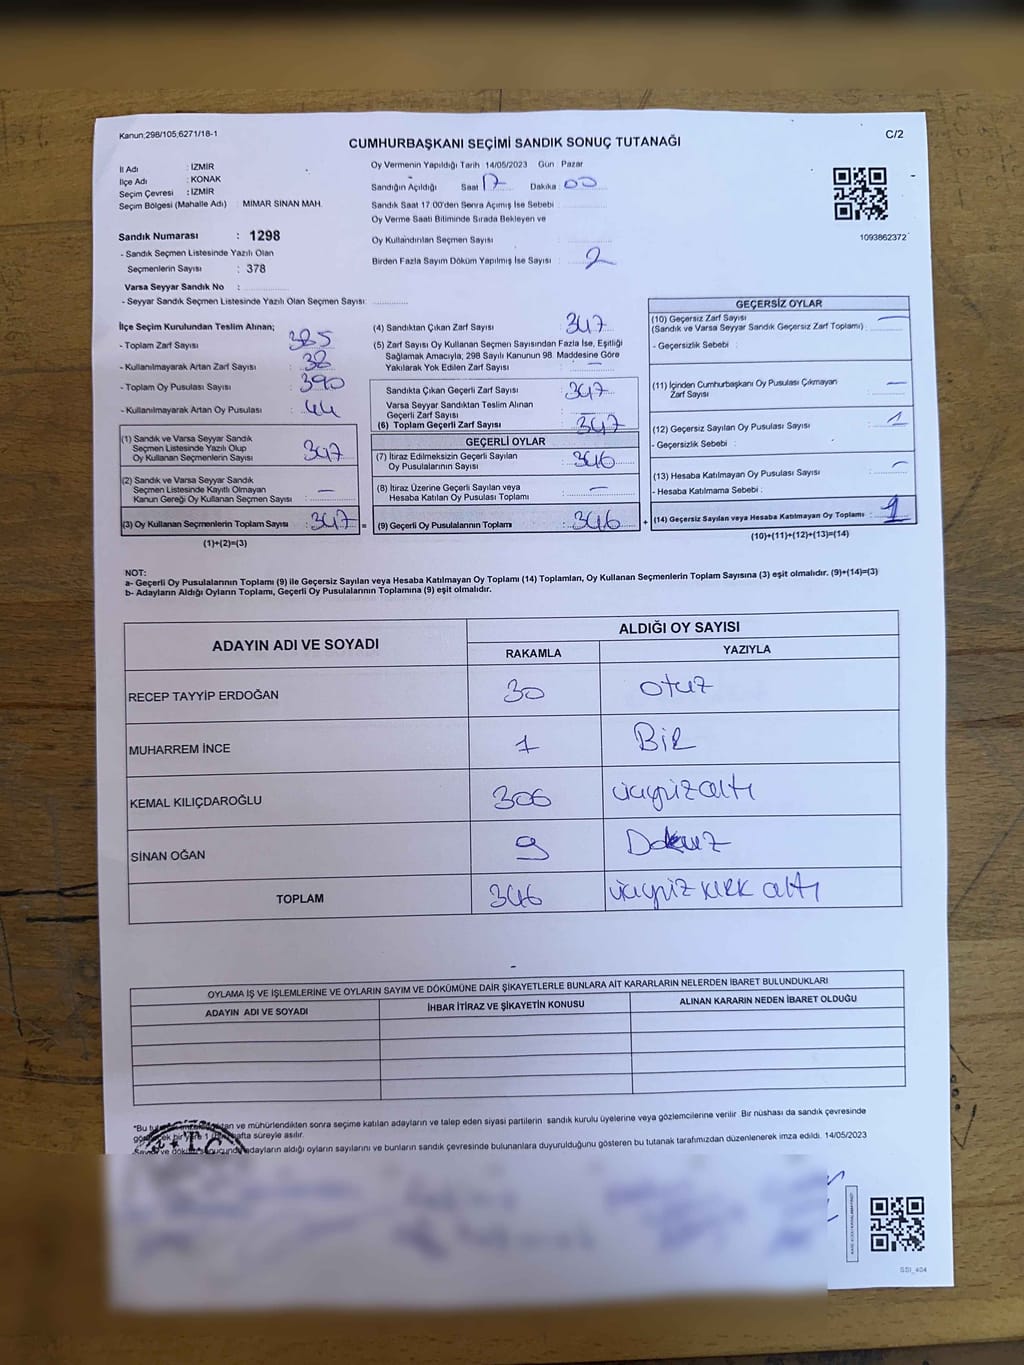 Kanun;298/105;6271/18-1
C/2
CUMHURBAŞKANI SEÇİMİ SANDIK SONUÇ TUTANAĞI
İl Adı : İZMİR
İlçe Adı : KONAK
Seçim Çevresi : İZMİR
Seçim Bölgesi (Mahalle Adı) : MİMAR SİNAN MAH.
Sandık Numarası : 1298
- Sandık Seçmen Listesinde Yazılı Olan
Seçmenlerin Sayısı : 378
Varsa Seyyar Sandık No :
- Seyyar Sandık Seçmen Listesinde Yazılı Olan Seçmen Sayısı:
Oy Vermenin Yapıldığı Tarih 14/05/2023 Gün : Pazar
Sandığın Açıldığı Saat 17 Dakika : 00
Sandık Saat 17:00'den Sonra Açımış İse Sebebi :
Oy Verme Saati Bitiminde Sırada Bekleyen ve
Oy Kullandırılan Seçmen Sayısı
Birden Fazla Sayım Döküm Yapılmış İse Sayısı : 2
1093862372
İlçe Seçim Kurulundan Teslim Alınan;
- Toplam Zarf Sayısı : 385
- Kullanılmayarak Artan Zarf Sayısı : 38
- Toplam Oy Pusulası Sayısı : 390
- Kullanılmayarak Artan Oy Pusulası : 44
(1) Sandık ve Varsa Seyyar Sandık
Seçmen Listesinde Yazılı Olup
Oy Kullanan Seçmenlerin Sayısı : 347
(2) Sandık ve Varsa Seyyar Sandık
Seçmen Listesinde Kayıtlı Olmayan
Kanun Gereği Oy Kullanan Seçmen Sayısı : —
(3) Oy Kullanan Seçmenlerin Toplam Sayısı : 347 =
(1)+(2)=(3)
(4) Sandıktan Çıkan Zarf Sayısı : 347
(5) Zarf Sayısı Oy Kullanan Seçmen Sayısından Fazla İse, Eşitliği
Sağlamak Amacıyla; 298 Sayılı Kanunun 98. Maddesine Göre
Yakılarak Yok Edilen Zarf Sayısı : —
Sandıkta Çıkan Geçerli Zarf Sayısı : 347
Varsa Seyyar Sandıktan Teslim Alınan
Geçerli Zarf Sayısı :
(6) Toplam Geçerli Zarf Sayısı : 347
GEÇERLİ OYLAR
(7) İtiraz Edilmeksizin Geçerli Sayılan
Oy Pusulalarının Sayısı : 346
(8) İtiraz Üzerine Geçerli Sayılan veya
Hesaba Katılan Oy Pusulası Toplamı : —
(9) Geçerli Oy Pusulalarının Toplamı : 346 +
GEÇERSİZ OYLAR
(10) Geçersiz Zarf Sayısı
(Sandık ve Varsa Seyyar Sandık Geçersiz Zarf Toplamı) : —
- Geçersizlik Sebebi :
(11) İçinden Cumhurbaşkanı Oy Pusulası Çıkmayan
Zarf Sayısı : —
(12) Geçersiz Sayılan Oy Pusulası Sayısı : 1
- Geçersizlik Sebebi :
(13) Hesaba Katılmayan Oy Pusulası Sayısı : —
- Hesaba Katılmama Sebebi :
(14) Geçersiz Sayılan veya Hesaba Katılmayan Oy Toplamı : 1
(10)+(11)+(12)+(13)=(14)
NOT:
a- Geçerli Oy Pusulalarının Toplamı (9) ile Geçersiz Sayılan veya Hesaba Katılmayan Oy Toplamı (14) Toplamları, Oy Kullanan Seçmenlerin Toplam Sayısına (3) eşit olmalıdır. (9)+(14)=(3)
b- Adayların Aldığı Oyların Toplamı, Geçerli Oy Pusulalarının Toplamına (9) eşit olmalıdır.
ADAYIN ADI VE SOYADI
ALDIĞI OY SAYISI
RAKAMLA YAZIYLA
RECEP TAYYİP ERDOĞAN 30 otuz
MUHARREM İNCE 1 BİR
KEMAL KILIÇDAROĞLU 306 üçyüzaltı
SİNAN OĞAN 9 Dokuz
TOPLAM 346 üçyüz kırk altı
OYLAMA İŞ VE İŞLEMLERİNE VE OYLARIN SAYIM VE DÖKÜMÜNE DAİR ŞİKAYETLERLE BUNLARA AİT KARARLARIN NELERDEN İBARET BULUNDUKLARI
ADAYIN ADI VE SOYADI İHBAR İTİRAZ VE ŞİKAYETİN KONUSU ALINAN KARARIN NEDEN İBARET OLDUĞU
*Bu ve mühürlendikten sonra seçime katılan adayların ve talep eden siyasi partilerin sandık kurulu üyelerine veya gözlemcilerine verilir. Bir nüshası da sandık çevresinde
bir yere 1 hafta süreyle asılır.
adayların aldığı oyların sayılarını ve bunların sandık çevresinde bulunanlara duyurulduğunu gösteren bu tutanak tarafımızdan düzenlenerek imza edildi. 14/05/2023
T.C
SSI_404